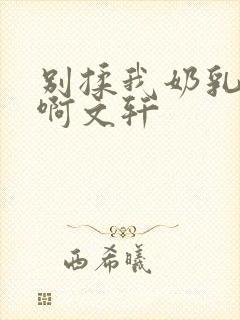 别揉我奶乳
啊文轩
西希曦